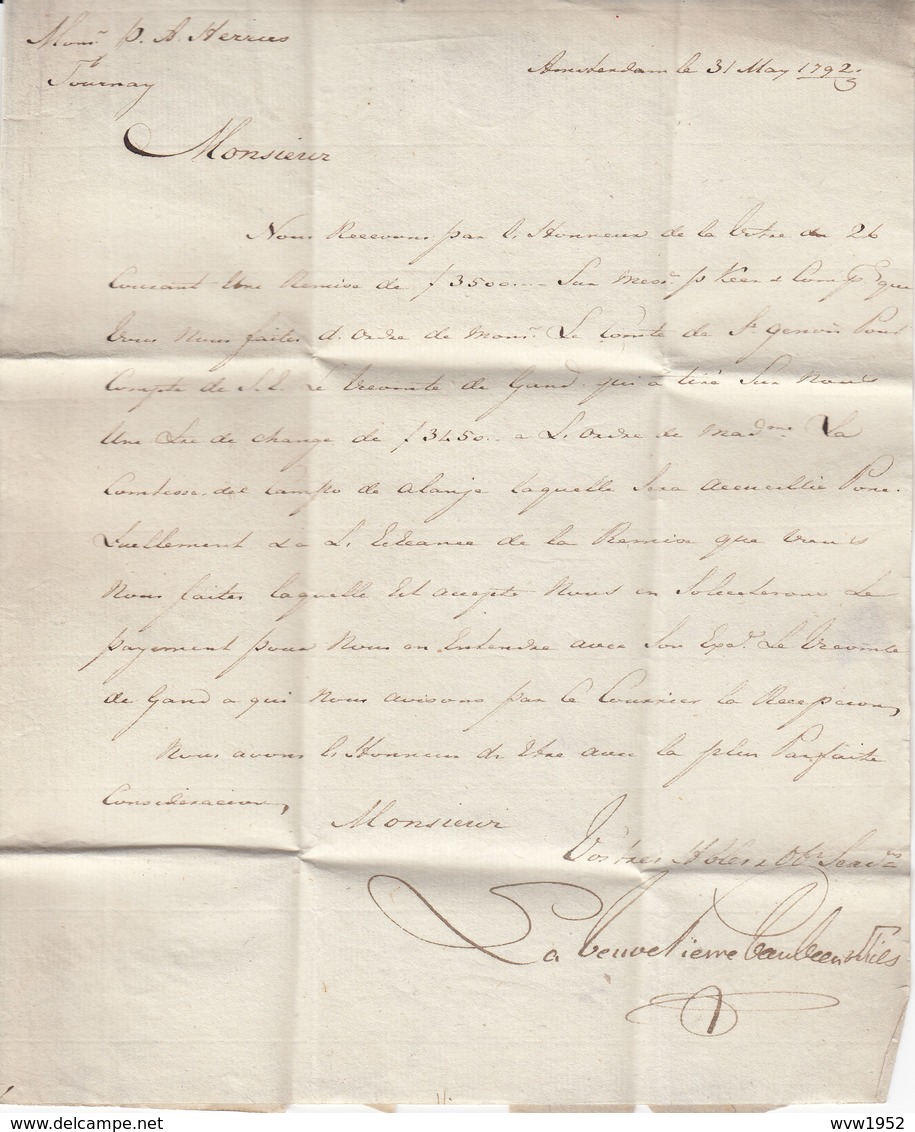 Monsr. p. A. Herries
Tournay
Amsterdam le 31 May 1792.
Monsieur
Nous Recevons par l'Honneur de la Votre du 26
Courant Une Remise de f 3500.-- Sur Mess. p Keer & Comp. que
Vous Nous faites d'ordre de Monsr. Le Comte de St. genois Pour
Compte de S.E. Le Vicomte de Gand qui a tiré Sur Nous
Une Lre de change de f 3450.. a L'ordre de Madme. La
Comtesse del Campo de alanje laquelle Sera accueillie Ponc-
tuellement & a L'Echeance de la Remise que Vous
Nous faites laquelle Est accepté Nous en Soliciterons Le
payement pour Nous en Entendre avec Son Exce. Le Vicomte
de Gand a qui Nous avisons par ce Courrier la Recepcion,
Nous avons l'Honneur de Etre avec la plus Parfaite
Consideracion,
Monsieur
Vos tres Hbles & Obt. Servrs.
La Veuve Pierre & Fils
www1952